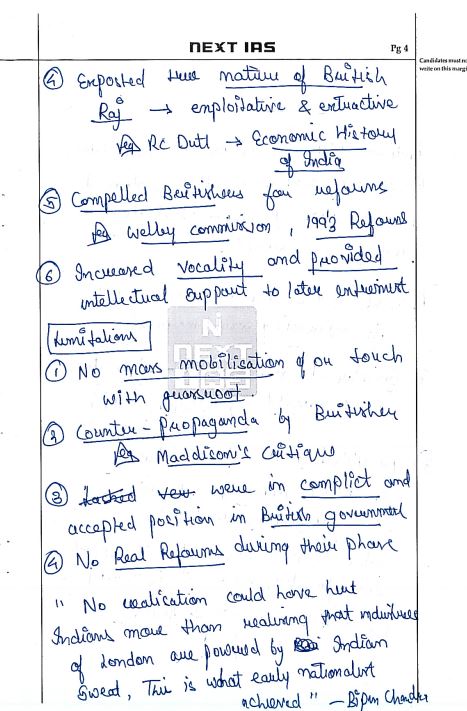 NEXT IAS
Pg 4
Candidates must no
write on this margi
④ Exposted true nature of British
Raj → exploitative & extractive
eg RC Dutt → Economic History
of India
⑤ Compelled Britishers for reforms
eg Welby commission, 1993 Reforms
⑥ Increased vocality and provided
intellectual support to later extremist
Limitations
① No mass mobilisation of or touch
with grassroot.
② Counter-Propaganda by Britisher
eg Maddison's critique
③ were in complict and
accepted position in British government
④ No Real Reforms during their phase
" No realisation could have hurt
Indians more than realising that industries
of London are powered by Indian
Sweat, This is what early nationalist
achieved " - Bipin Chandra